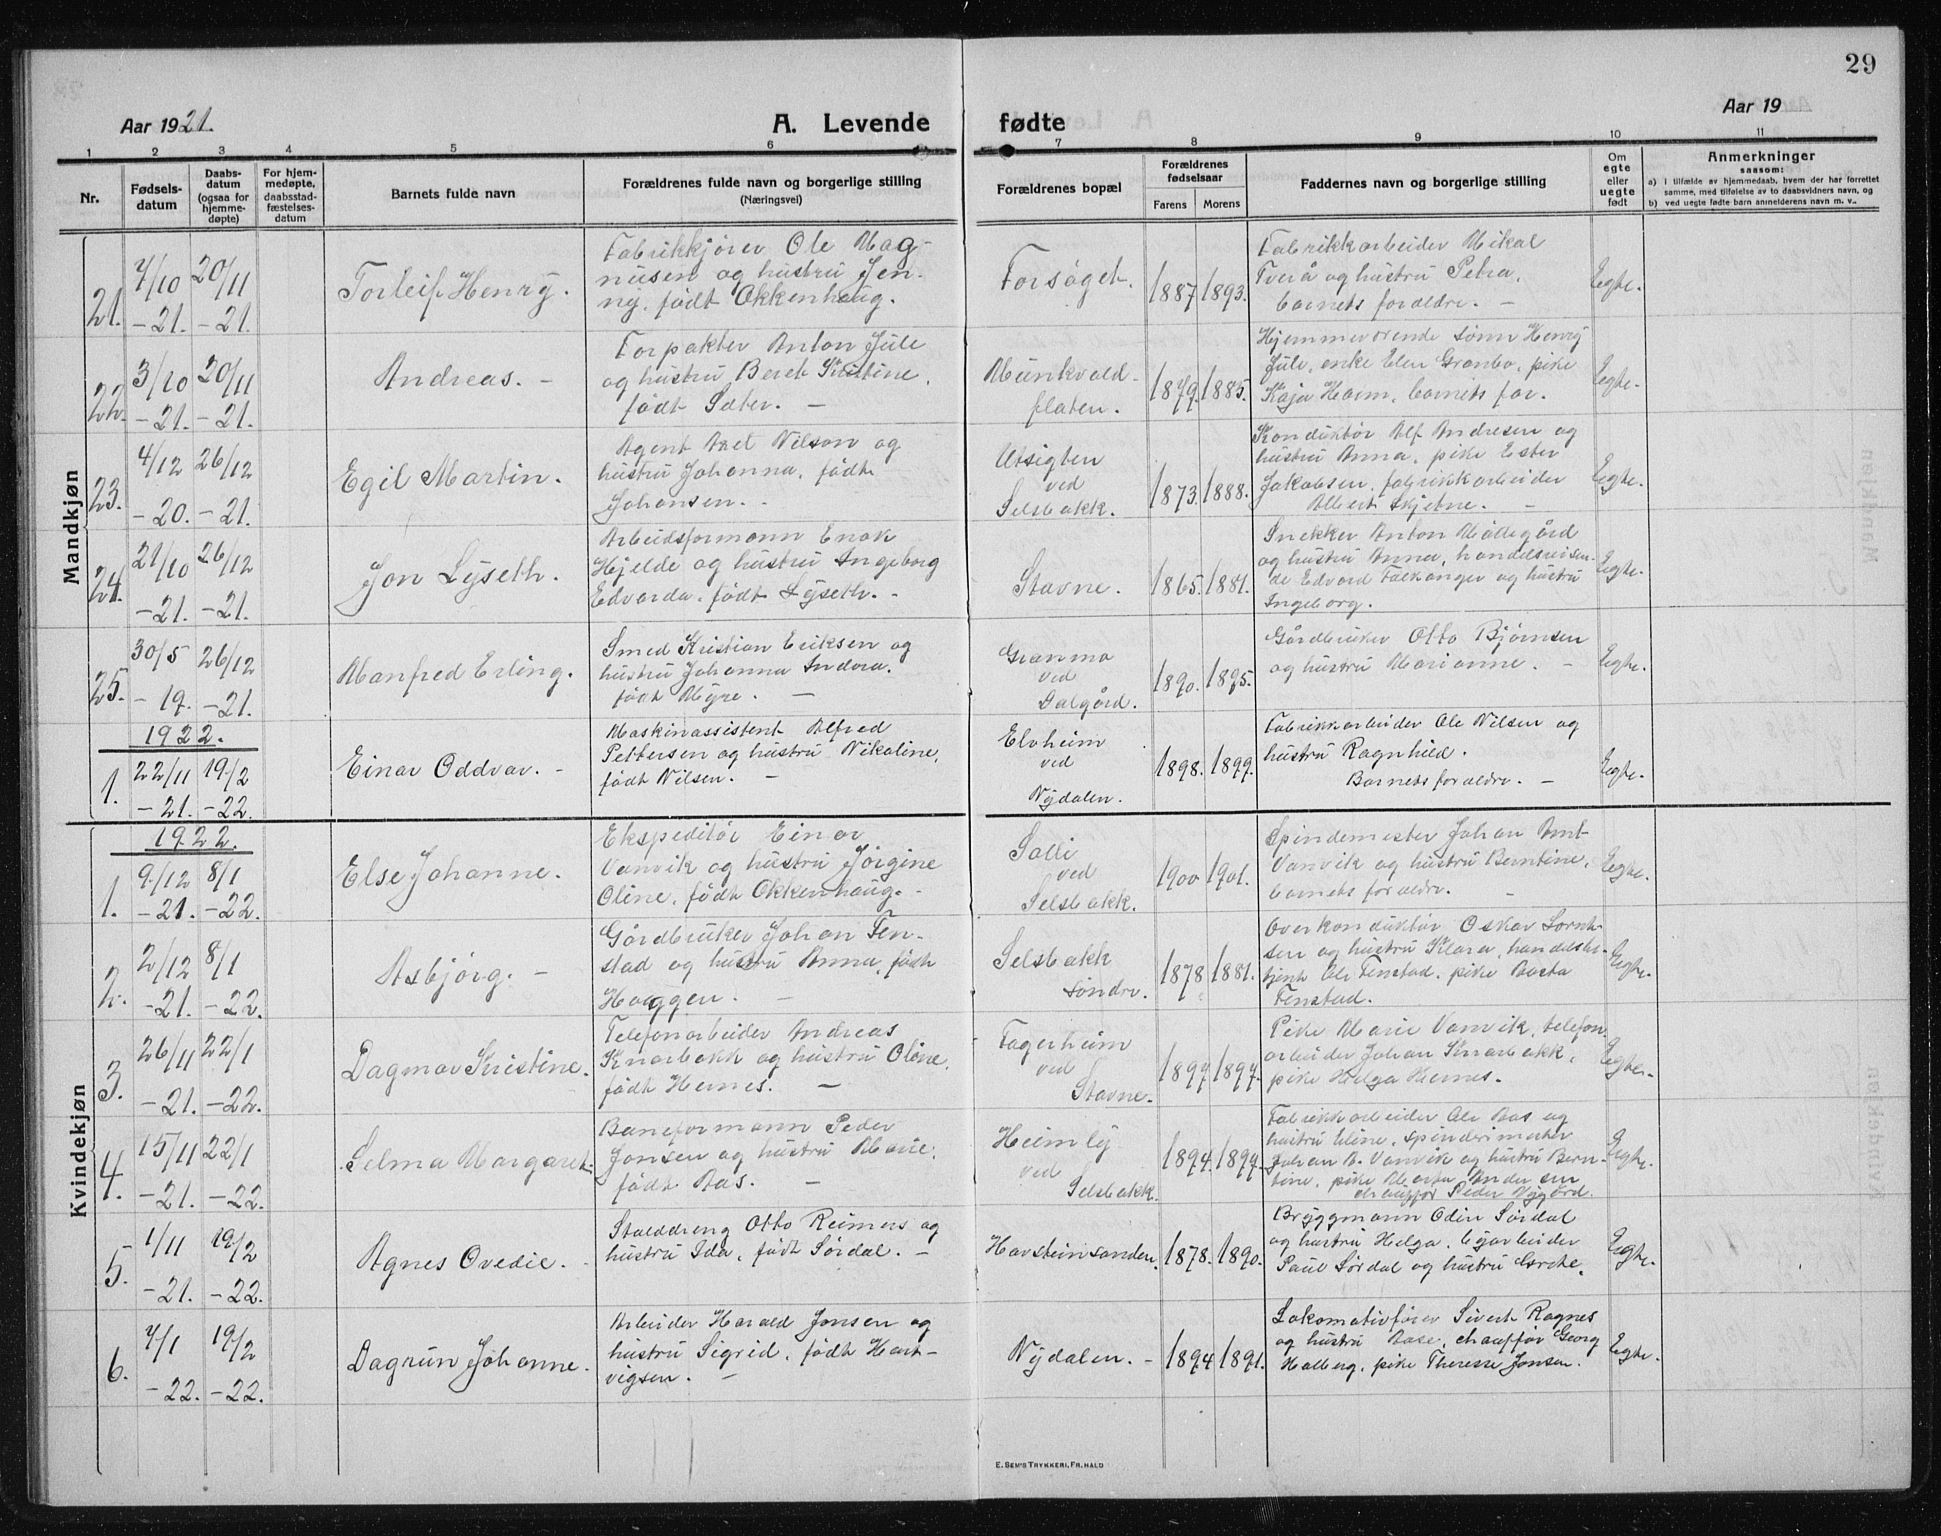 29
Aar 1921.
A. Levende
fødte
Aar 19
1 2 3 4 5 6 7 8 9 10 11
Nr.
Fødsels-
datum
Daabs-
datum
(ogsaa for
hjemme-
døpte)
For hjem-
medøpte,
daabsstad-
fæstelses-
datum
Barnets fulde navn
Forældrenes fulde navn og borgerlige stilling
(Næringsvei)
Forældrenes bopæl
Forældrenes
fødselsaar
Farens Morens
Faddernes navn og borgerlige stilling
Om
egte
eller
uegte
født
Anmerkninger
saasom:
a) I tilfælde av hjemmedaab, hvem der har forrettet
samme, med tilføielse av to daabsvidners navn, og
b) ved uegte fødte barn anmelderens navn m. v..
Mandkjøn
21. 7/10 -21. 20/11 -21.
Torleif Henry.
Fabrikkjører Ole Mag-
nusen og hustru Jen-
ny, født Okkenhaug.
Forsøget.
1887 1893.
Fabrikkarbeider Mikal
Tverå og hustru Petra,
barnets forældre. -
Egte.
22. 3/10 -21. 20/11 -21.
Andreas. -
Forpakter Anton Jule
og hustru Beret Kristine,
født Sæter. -
Munkvold-
flaten.
1879. 1885.
Hjemmeværende sønn Henry
Jule, enke Elen Granbo, pike
Kaja Harm, barnets far.
Egte.
23. 4/12 -20. 26/12 -21.
Egil Martin.
Agent Axel Nilson og
hustru Johanna, født
Johansen. -
Utsigten
ved
Selsbakk.
1873. 1888.
Konduktør Alf Andresen og
hustru Anna, pike Ester
Jakobsen, fabrikkarbeider
Albert Skjetne. -
Egte.
24. 21/10 -21. 26/12 -21.
Jon Lyseth.
Arbeidsformann Enok
Hjelde og hustru Ingeborg
Edvarda, født Lyseth. -
Stavne.
1865. 1881.
Snekker Anton Møllegård
og hustru Anna, handelsreisen-
de Edvard Falkanger og hustru
Ingeborg.
Egte.
25. 30/5 -19. 26/12 -21.
Manfred Erling.
Smed Kristian Eriksen og
hustru Johanna Indora,
født Myre. -
Granmo
ved
Dalgård.
1890. 1895.
Gårdbruker Otto Bjørnsen
og hustru Marianne. -
Egte.
1922.
1. 22/11 -21. 19/2 -22.
Einar Oddvar. -
Maskinassistent Alfred
Pettersen og hustru Nikoline,
født Nilsen. -
Elvheim
ved
Nydalen.
1898. 1899.
Fabrikkarbeider Ole Nilsen og
hustru Ragnhild.
Barnets forældre. -
Egte.
Kvindekjøn
1922.
1. 9/12 -21. 8/1 -22.
Else Johanne.
Ekspeditør Einar
Vanvik og hustru Jørgine
Oline, født Okkenhaug. -
Solli
ved
Selsbakk.
1900 1901.
Spindemester Johan Arnt
Vanvik og hustru Berntine,
barnets forældre. -
Egte.
2. 2/12 -21. 8/1 -22.
Asbjørg. -
Gårdbruker Johan Ten-
stad og hustru Anna, født
Haggen. -
Selsbakk
søndre.
1878 1881.
Overkonduktør Oskar Sørnt-
sen og hustru Klara, handelsbe-
tjent Ole Tenstad, pike Aasta
Tenstad.
Egte.
3. 26/11 -21. 22/1 -22.
Dagmar Kristine.
Telefonarbeider Andreas
Knarbakk og hustru Oline,
født Hernes. -
Fagerheim
ved
Stavne.
1897 1897.
Pike Marie Vanvik, telefon-
arbeider Johan Knarbakk,
pike Helga Hernes.
Egte.
4. 15/11 -21. 22/1 -22.
Selma Margaret.
Baneformann Peder
Jonsen og hustru Marie,
født Aas. -
Heimly
ved
Selsbakk.
1894. 1899.
Fabrikkarbeider Ole Aas og
hustru Eline, spinderimester
Johan A. Vanvik og hustru Bern-
tine, pike Marta Andersen
chauffør Peder Nygård.
Egte.
5. 1/11 -21. 19/2 -22.
Agnes Ovedie. -
Stalddreng Otto Reimers og
hustru Ida, født Sørdal. -
Havsteinsanden.
1878. 1890.
Bryggmann Odin Sørdal
og hustru Helga, byarbeider
Paul Sørdal og hustru Grete.
Egte.
6. 7/1 -22. 19/2 -22.
Dagrun Johanne.
Arbeider Harald Jonsen og
hustru Sigrid, født Hart-
vigsen. -
Nydalen. -
1894 1891.
Lokomotivfører Sivert Ragnes
og hustru Aase, chauffør Georg
Halberg, pike Therese Jonsen.
Egte.
E. SEM'S TRYKKERI, FR. HALD